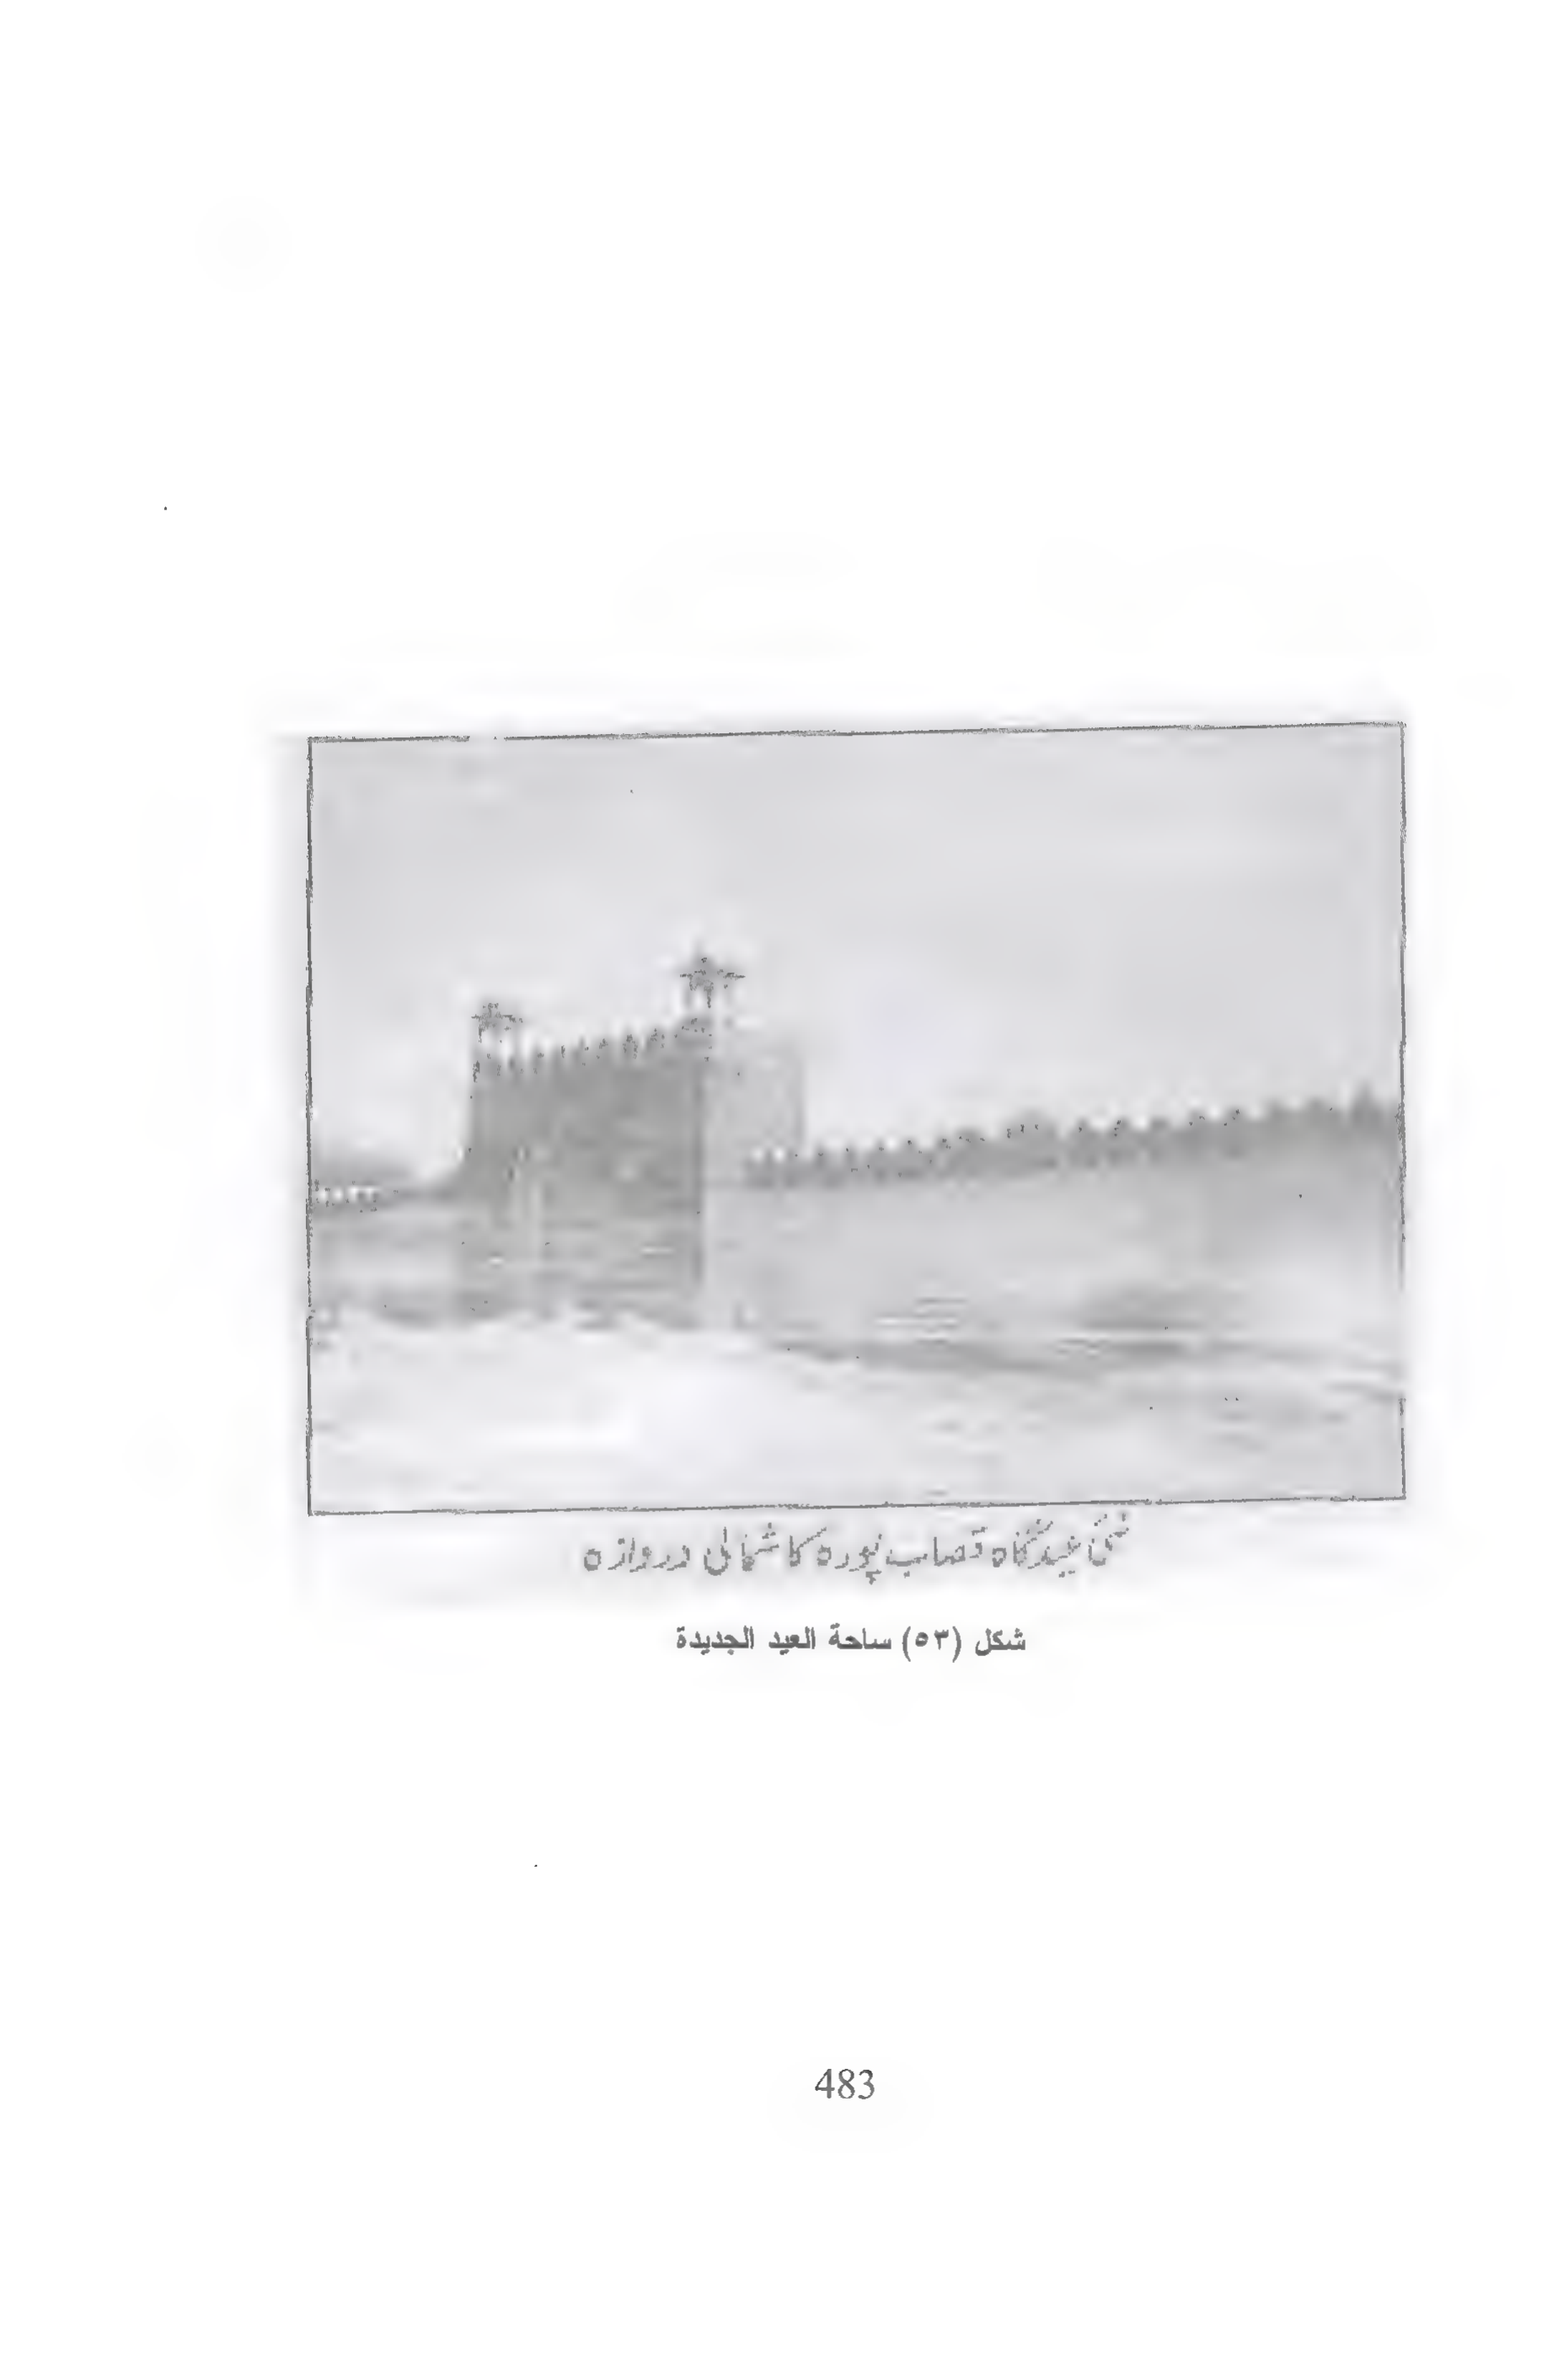 نئی عیدگاہ قصاب پورہ کا شمالی دروازہ
شكل (٥٣) ساحة العيد الجديدة
483